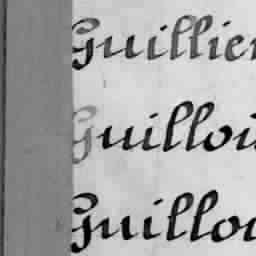 Guillier
Guillou
Guillou